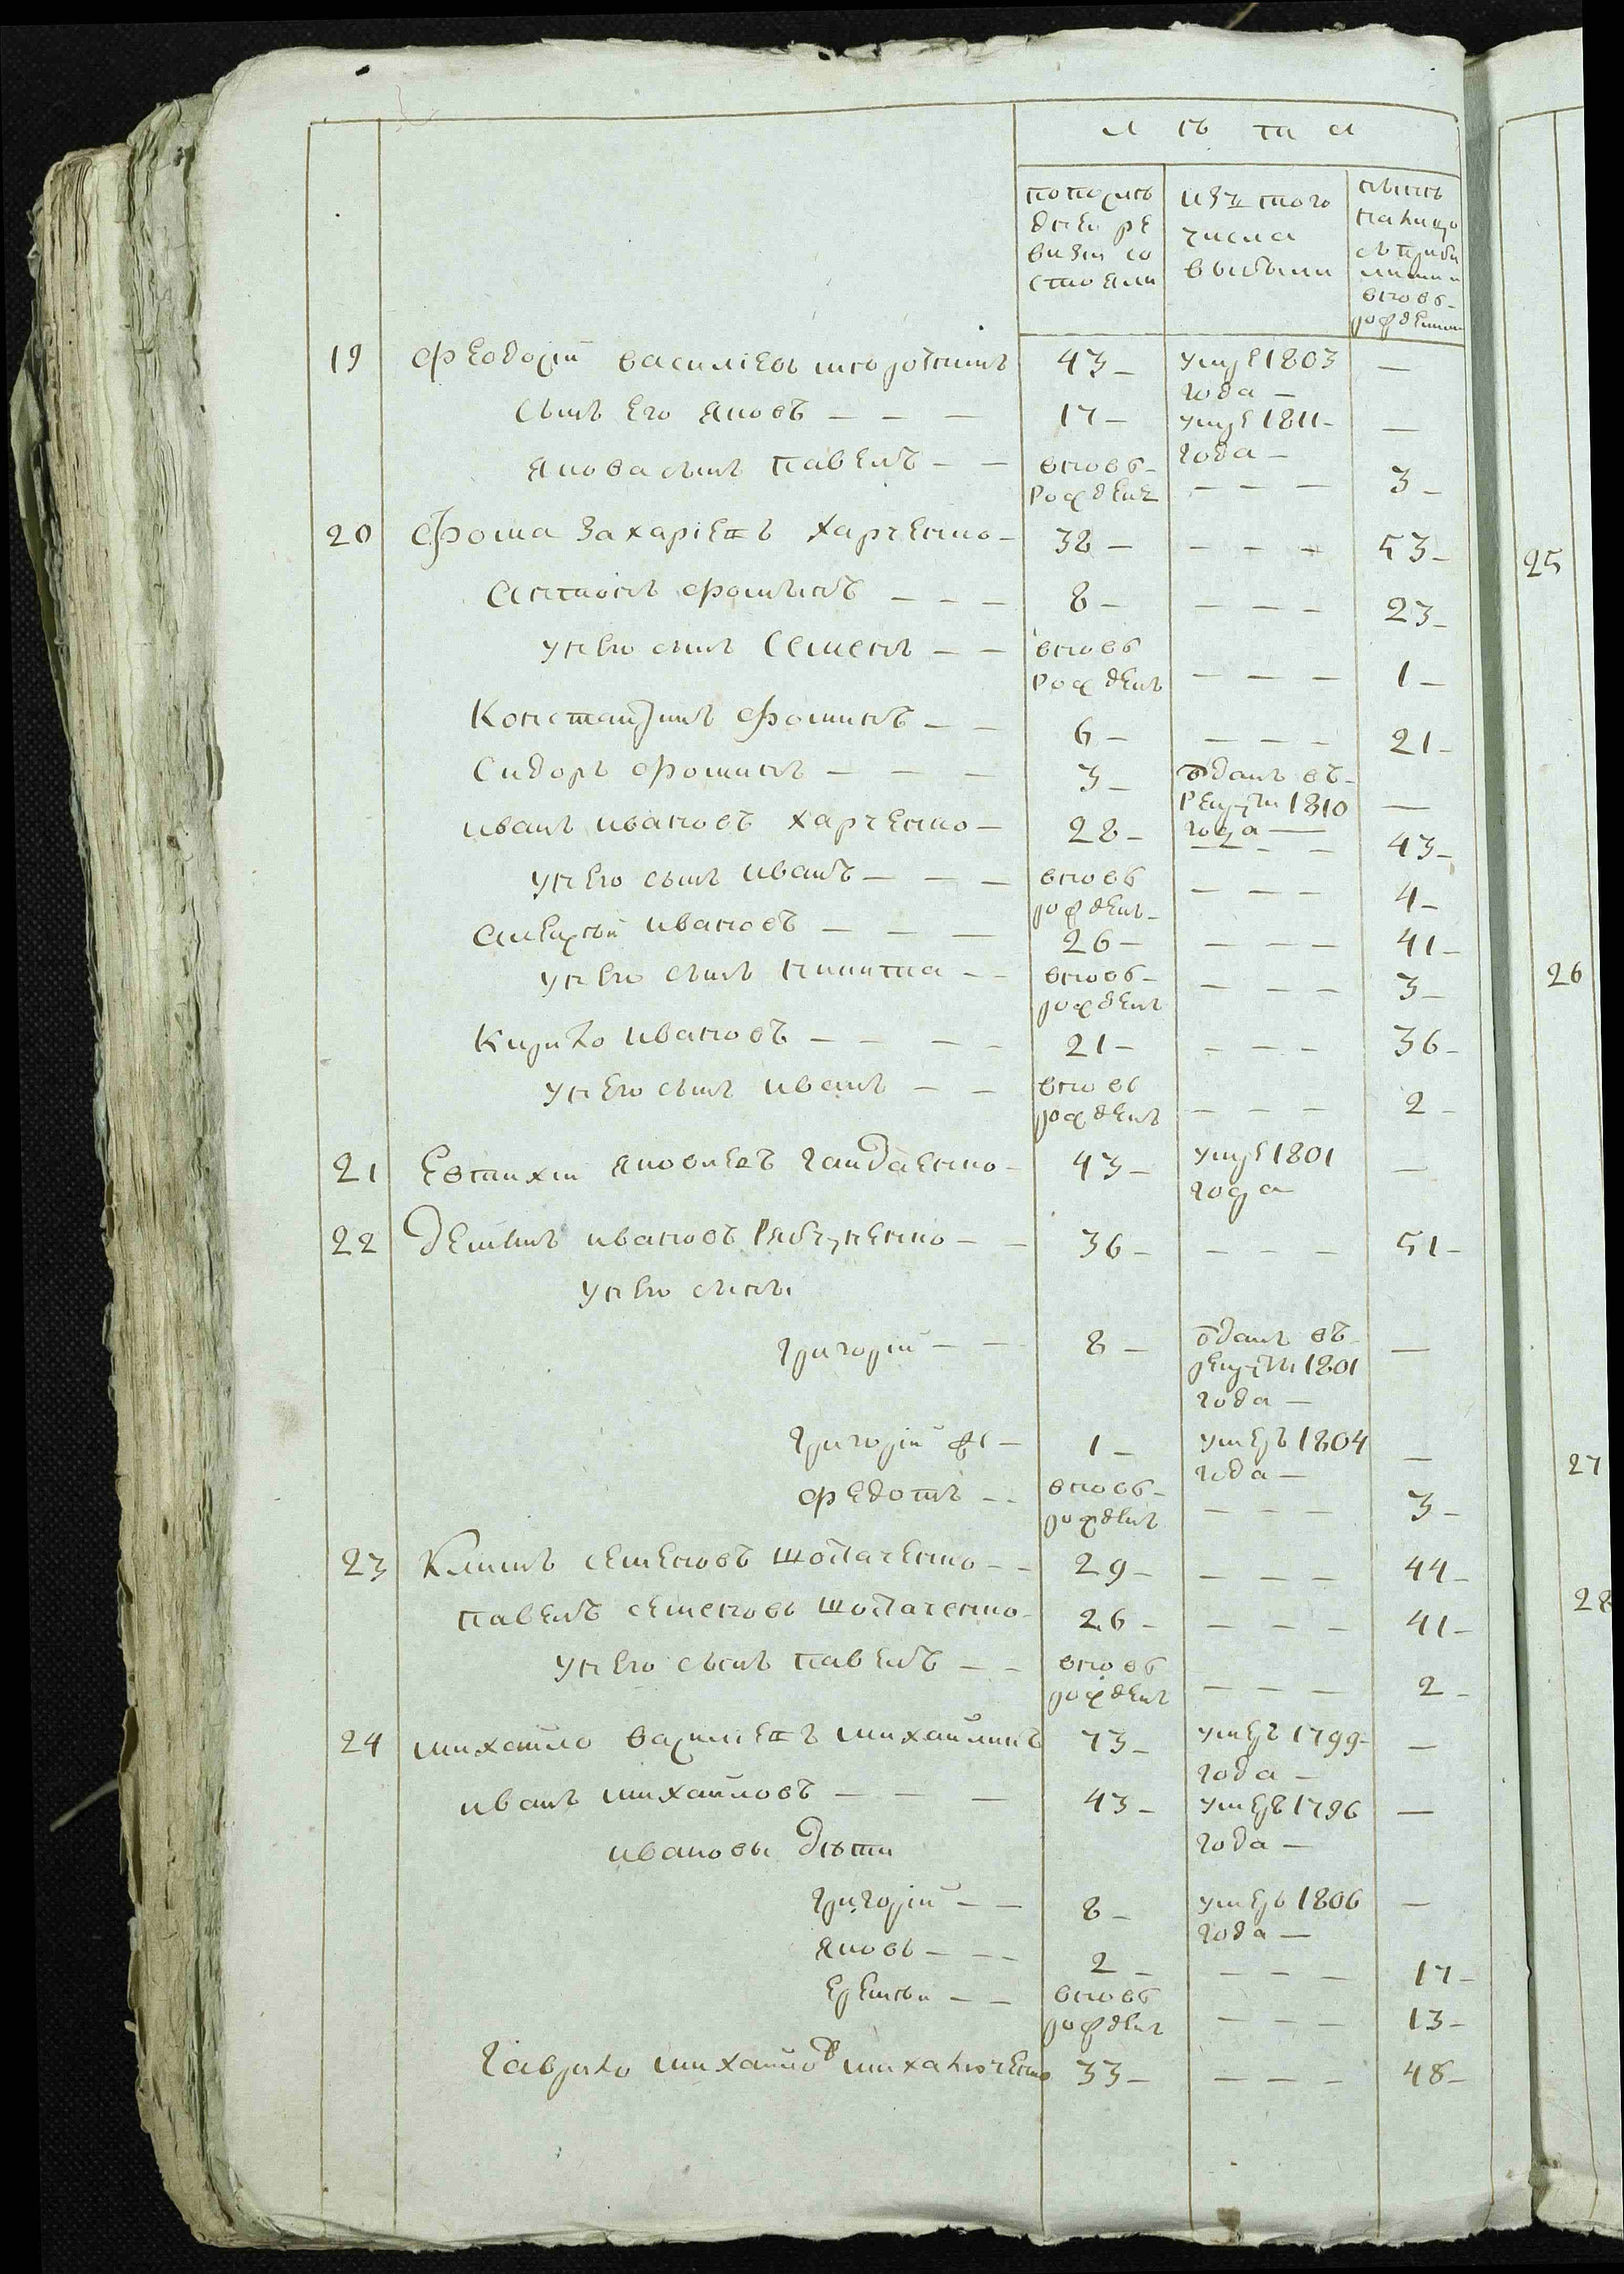 лѣта
попослѣ дней ре визiи со стояли
изъ того числа выбыли
нынѣ налицо
вновь рожденными
19 Феодосiй Василiевъ 43 умре 1803 года —
сынъ его Яковъ 17 умре 1811 года —
Якова сынъ Павелъ вновь рожденъ — 3
20 Фома Захарiевъ Харченко 38 — 53
Антонъ Фоминъ 8 — 23
у него сынъ Семенъ вновь рожденъ — 1
Константинъ Фоминъ 6 — 21
Сидоръ Фоминъ 3 отданъ въ рекруты 1810 года —
Иванъ Ивановъ Харченко 28 — 43
у него сынъ Иванъ вновь рожденъ — 4
Алексѣй Ивановъ 26 — 41
у него сынъ Никита вновь рожденъ — 3
Кирило Ивановъ 21 — 36
у него сынъ Иванъ вновь рожденъ — 2
21 Евтихiй Яковлевъ Гайдаенко 43 умре 1801 года —
22 Демьянъ Ивановъ Рябчуненко 36 — 51
у него сыны
Григорiй 8 отданъ въ рекруты 1801 года —
Григорiй же 1 умеръ 1804 года —
Федотъ вновь рожденъ — 3
23 Климъ Семеновъ Шопаченко 29 — 44
Павелъ Семеновъ Шопаченко 26 — 41
у него сынъ Павелъ вновь рожденъ — 2
24 Михайло Василiевъ Михайликъ 73 умеръ 1799 года —
Иванъ Михайловъ 43 умеръ 1796 года —
Ивановы дѣти
Григорiй 8 умеръ 1806 года —
Яковъ 2 — 17
Еремѣй вновь рожденъ — 13
Гаврило Михайловъ Михалюченко 33 — 48
25
26
27
28